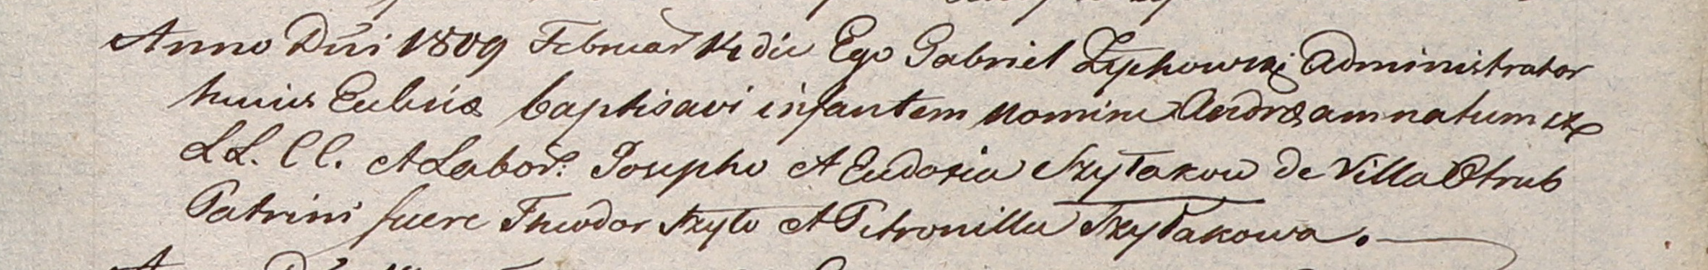 Anno Dñi 1809 Februar 14 die Ego Gabriel Zyphowski Administrator
huius Eccliæ baptisavi infantem nomine Andræam natum ex
LL. CC. et Labor: Josepho et Eudoxia Szyłakow de Villa Otrub
Patrini fuere Theodor Szyło et Petronilla Szyłakowa.